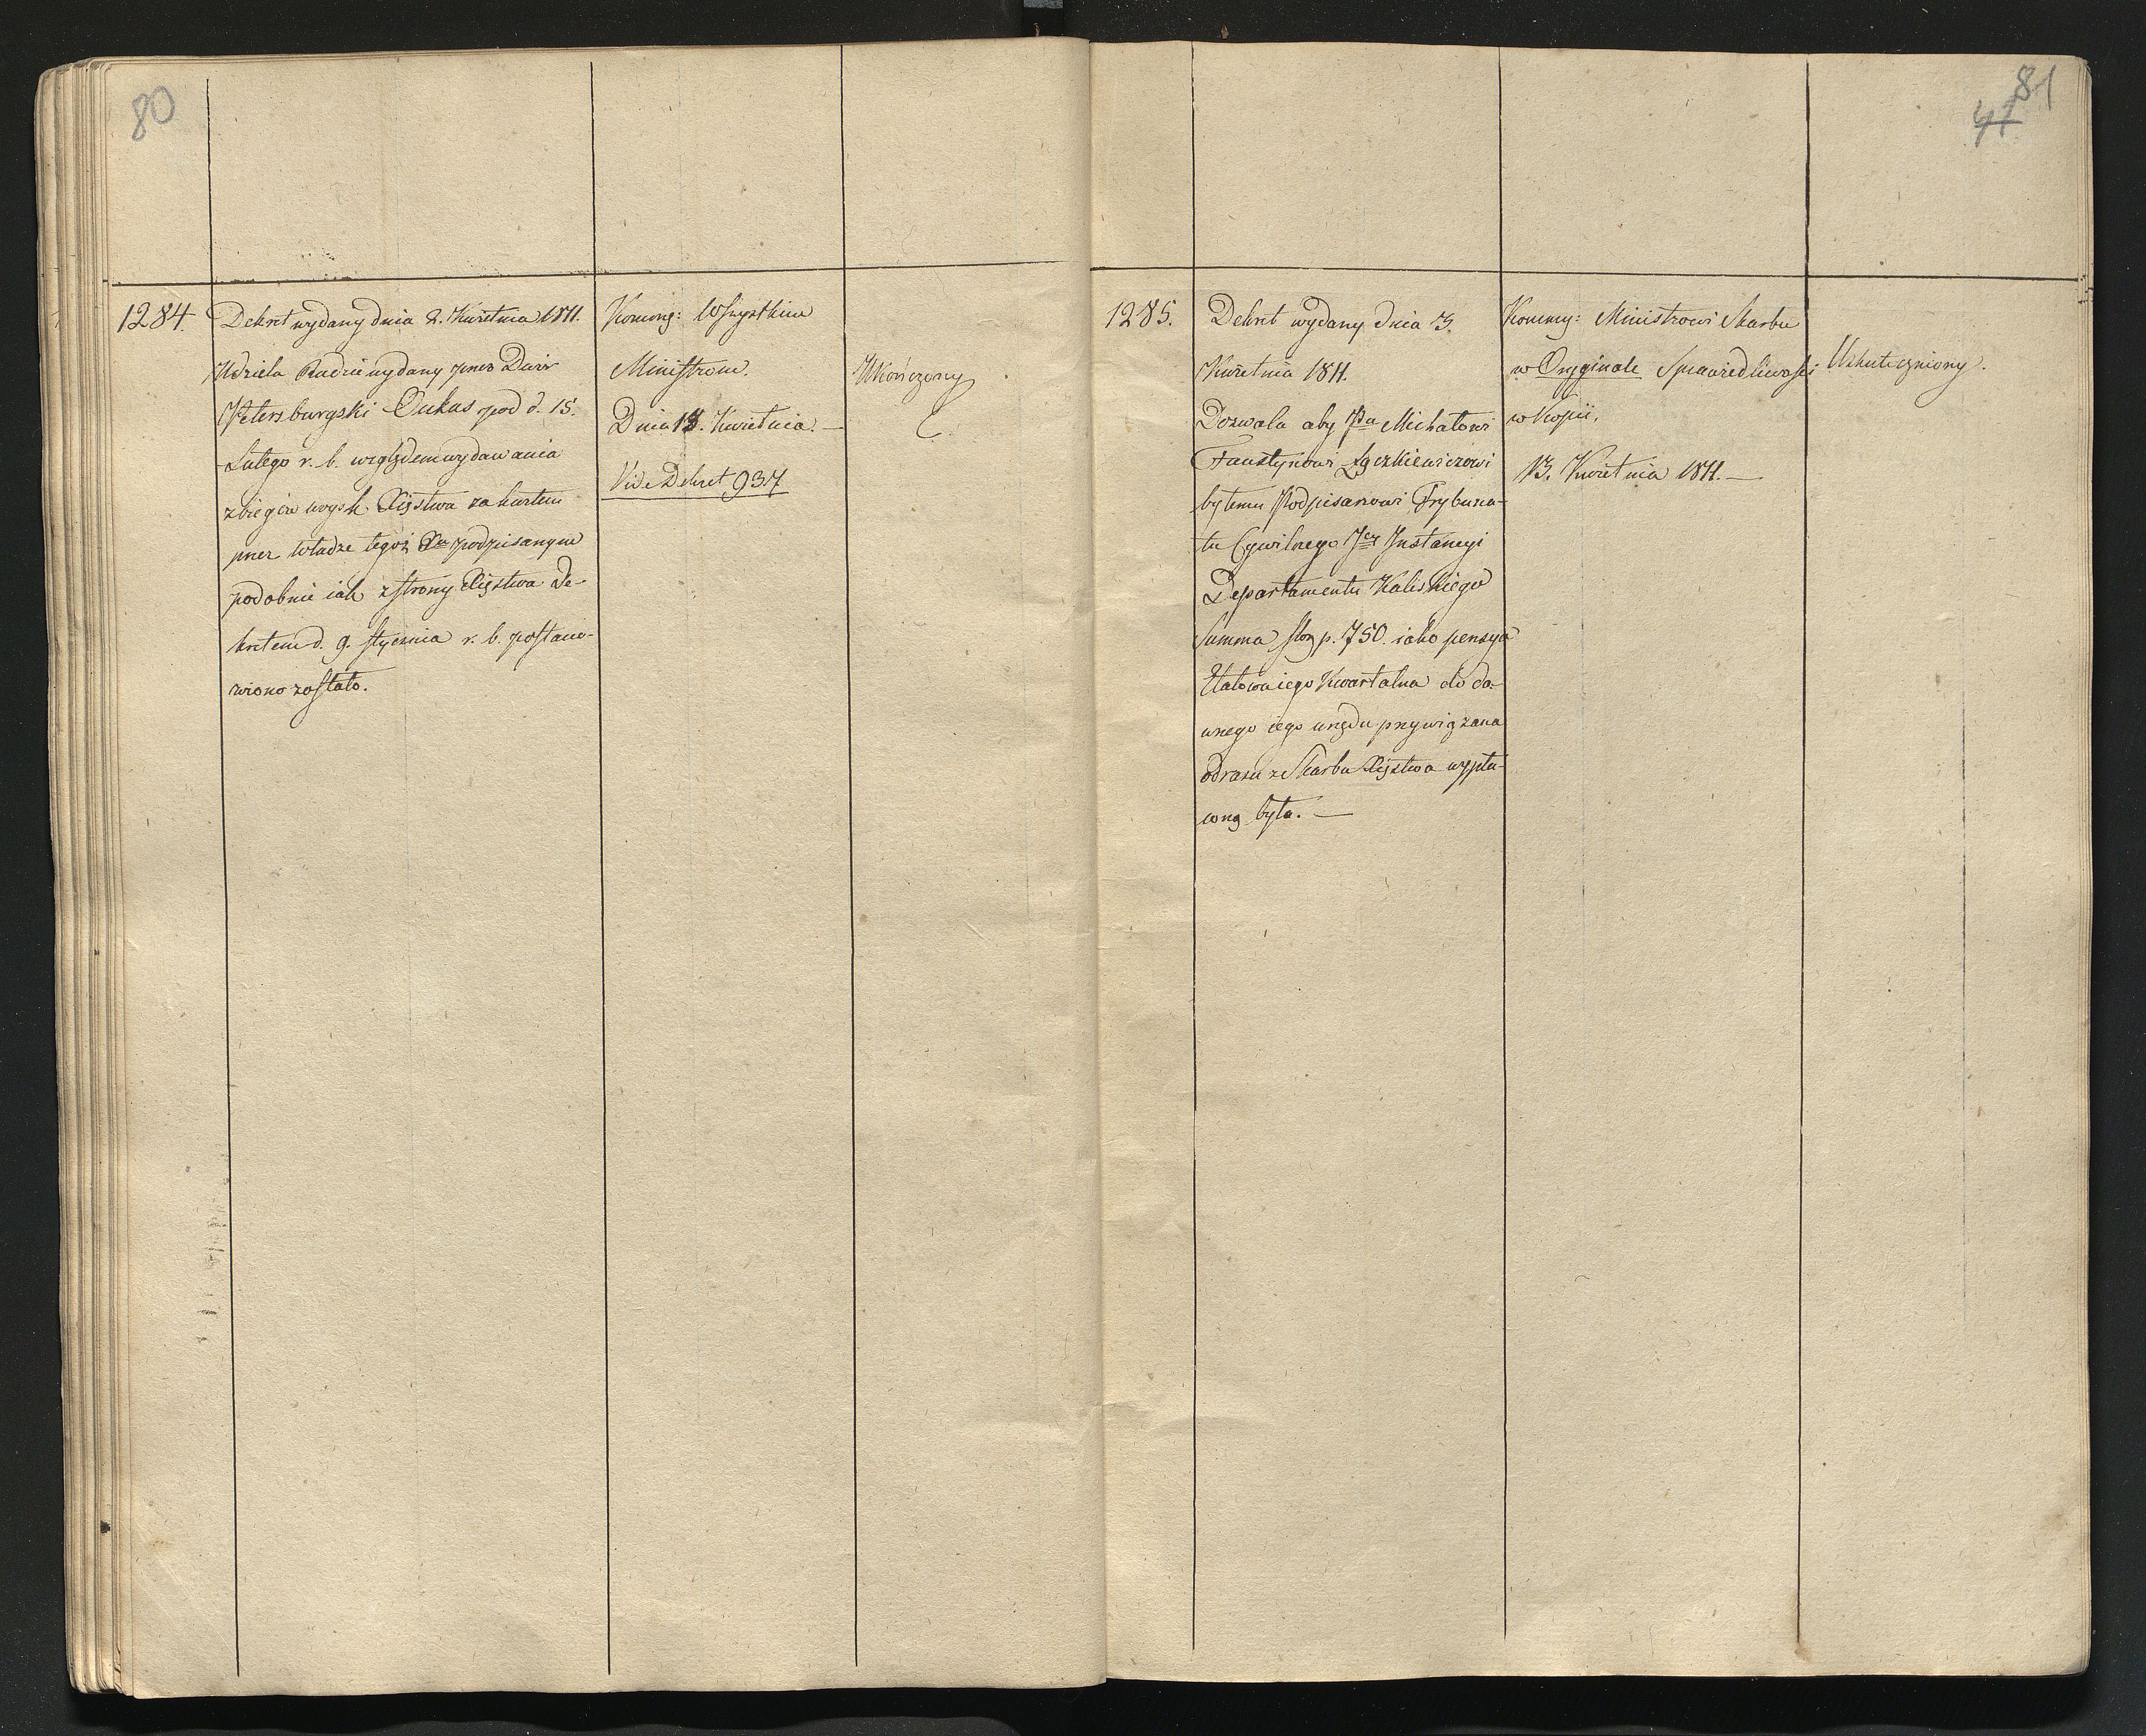 80
1284.
Dekret wydany dnia 2. Kwietnia 1811.
Udziela Radzie wydany przez Dwór
Petersburgski Oukas pod d. 15.
Lutego r. b. względem wydawania
zbiegów wysł. Xięstwa za kartem
przez władze tegoż Xa podpisanym
podobnie iak z strony Xięstwa De-
kretem d. 9. stycznia r. b. postano-
wiono zostało.
Kommq: Wszystkim
Ministrom.
Dnia 13. Kwietnia. —
Vide Dekret 937
Ukończony
81
41
1285.
Dekret wydany dnia 3.
Kwietnia 1811.
Dozwala aby Pu Michałowi
Faustynowi Łączkiewiczowi
byłemu Podpisarzowi Trybuna-
łu Cywilnego Iey Instancyi
Departamentu Kaliskiego
Summa złor p. 750. iako pensya
Etatowa iego Kwartalna do da-
wnego iego urzędu przywiązana
odrazu z Skarbu Xięstwa wypła-
coną była. —
Kommq: Ministrowi Skarbu
w Oryginale Sprawiedliwości
w Kopii.
13. Kwietnia 1811. —
Uskuteczniony.